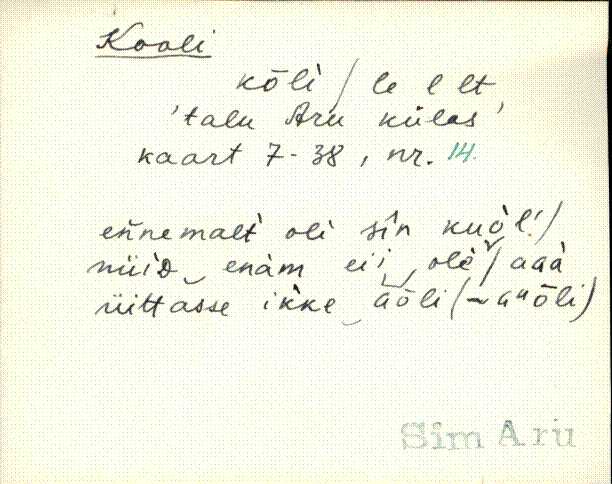 Kooli
kōli / le l lt
'talu Aru külas'
kaart 7-38, nr. 14.
ennemalt oli sin kuòl! /
nüiD enàm eii ole / aaà
üittasse ikke
Sim Aru